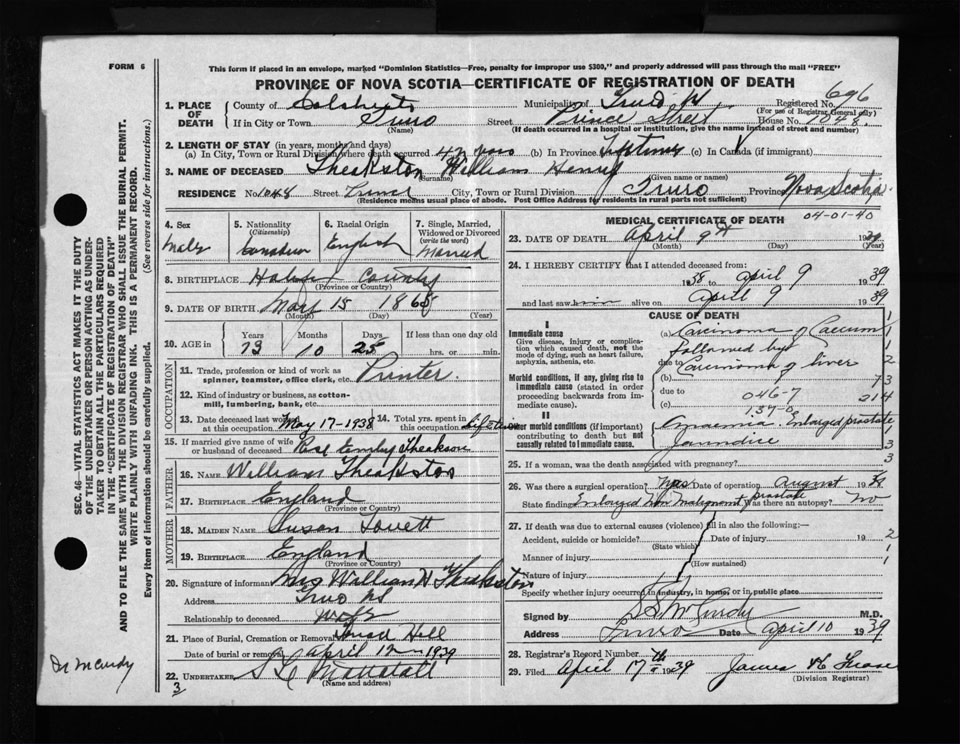 FORM 6
This form if placed in an envelope, marked "Dominion Statistics—Free, penalty for improper use $300," and properly addressed will pass through the mail "FREE"
PROVINCE OF NOVA SCOTIA—CERTIFICATE OF REGISTRATION OF DEATH
1. PLACE OF DEATH County of Colchester Municipality of Truro Registered No. 696
(For use of Registrar General only)
If in City or Town Truro Street Prince Street House No. 1048
(Name) (If death occurred in a hospital or institution, give the name instead of street and number)
2. LENGTH OF STAY (in years, months and days)
(a) In City, Town or Rural Division where death occurred 42 years (b) In Province Lifetime (c) In Canada (if immigrant)
3. NAME OF DECEASED Theakston William Henry
(Surname) (Given name or names)
RESIDENCE No. 1048 Street Prince City, Town or Rural Division Truro Province Nova Scotia
(Residence means usual place of abode. Post Office Address for residents in rural parts not sufficient)
4. Sex Male
5. Nationality (Citizenship) Canadian
6. Racial Origin English
7. Single, Married, Widowed or Divorced (write the word) Married
8. BIRTHPLACE Halifax County
(Province or Country)
9. DATE OF BIRTH May 15 1865
(Month) (Day) (Year)
10. AGE in Years Months Days If less than one day old
73 10 25 hrs. or min.
OCCUPATION
11. Trade, profession or kind of work as spinner, teamster, office clerk, etc. Printer.
12. Kind of industry or business, as cotton-mill, lumbering, bank, etc.
13. Date deceased last worked at this occupation May 17-1938 14. Total yrs. spent in this occupation Lifetime
15. If married give name of wife or husband of deceased Rose Emley Theakston
FATHER
16. NAME William Theakston
17. BIRTHPLACE England
(Province or Country)
MOTHER
18. MAIDEN NAME Susan
19. BIRTHPLACE England
(Province or Country)
20. Signature of informant Mrs William H Theakston
Address Truro NS
Relationship to deceased wife
21. Place of Burial, Cremation or Removal Hill
Date of burial or removal April 12 1939
22. UNDERTAKER
(Name and address)
3
MEDICAL CERTIFICATE OF DEATH
04-01-40
23. DATE OF DEATH April 9th 1939
(Month) (Day) (Year)
24. I HEREBY CERTIFY that I attended deceased from
1938 to April 9 1939
and last saw him alive on April 9 1939
CAUSE OF DEATH
I
Immediate cause
Give disease, injury or complication which caused death, not the mode of dying, such as heart failure, asphyxia, asthenia, etc.
(a) Carcinoma of Caecum
followed by
due to Carcinoma of liver
Morbid conditions, if any, giving rise to immediate cause (stated in order proceeding backwards from immediate cause).
(b)
due to 046-7
(c) 137-0
II
Other morbid conditions (if important) contributing to death but not causally related to immediate cause.
Anaemia. Enlarged prostate
Jaundice
1
1
1
2
73
214
3
25. If a woman, was the death associated with pregnancy? 3
26. Was there a surgical operation? Yes Date of operation August 1938
State findings Enlarged Non Malignant prostate Was there an autopsy? No
27. If death was due to external causes (violence) fill in also the following:—
Accident, suicide or homicide? Date of injury 19 2
(State which)
Manner of injury 1
(How sustained)
Nature of injury 1
Specify whether injury occurred in industry, in home, or in public place
Signed by M.D.
Address Truro Date April 10 1939
28. Registrar's Record Number
29. Filed April 17th 1939 James
(Division Registrar)
SEC. 46—VITAL STATISTICS ACT MAKES IT THE DUTY OF THE UNDERTAKER OR PERSON ACTING AS UNDERTAKER TO OBTAIN ALL THE PARTICULARS REQUIRED IN THE "CERTIFICATE OF REGISTRATION OF DEATH"
AND TO FILE THE SAME WITH THE DIVISION REGISTRAR WHO SHALL ISSUE THE BURIAL PERMIT.
WRITE PLAINLY WITH UNFADING INK. THIS IS A PERMANENT RECORD.
Every item of information should be carefully supplied. (See reverse side for instructions.)